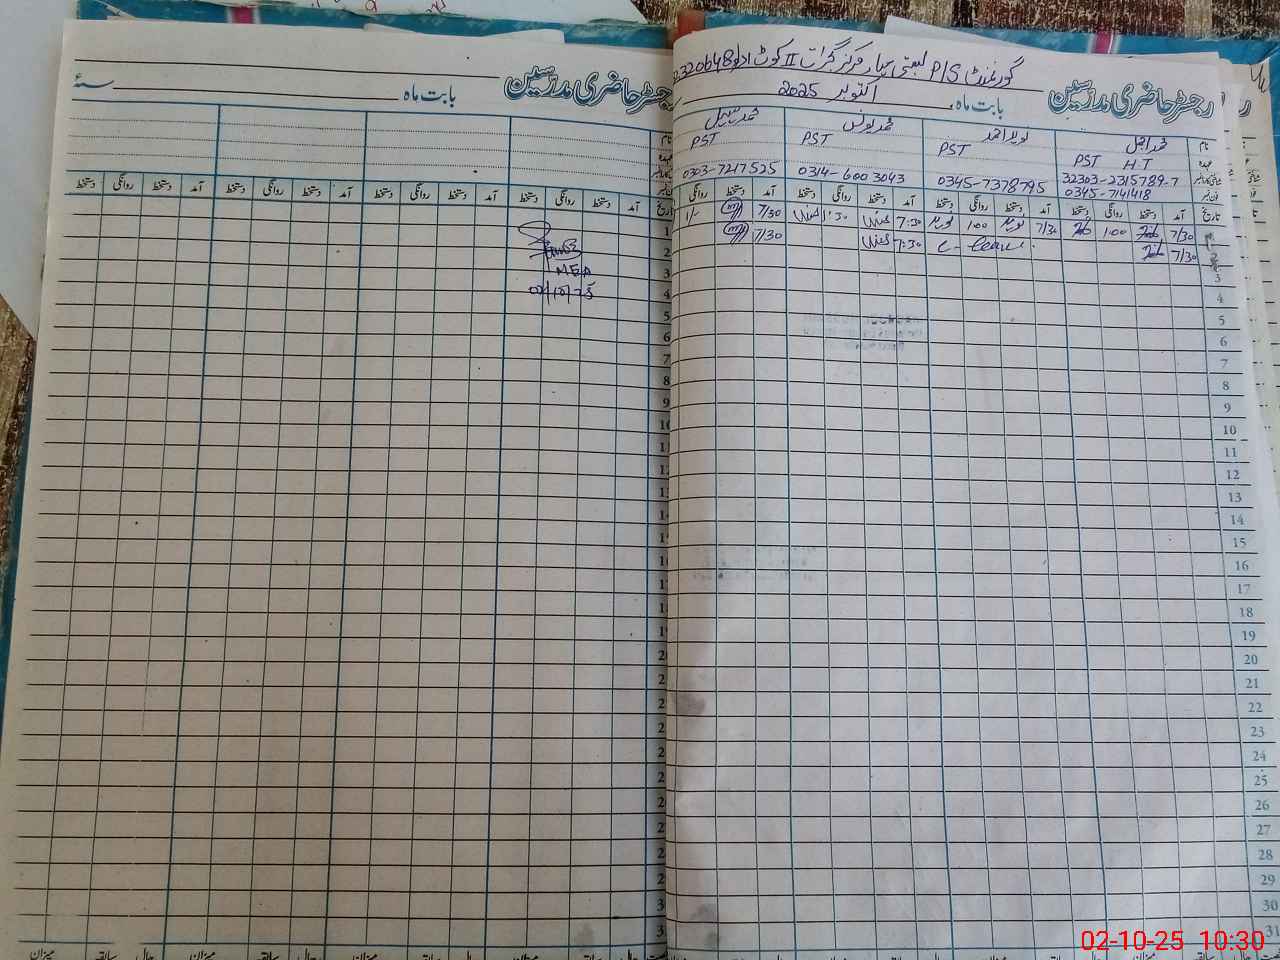 گورنمنٹ P/S بستی سیار مرکز گجرات II کوٹ ادو 32320648
رجسٹر حاضری مدرسین بابت ماہ، اکتوبر 2025
نام محمد اجمل نوید احمد محمد یونس محمد سہیل
عہدہ PST H.T PST PST PST
32303-2315789-7 0345-7378795 0314-6003043 0303-7217525
0345-7141418
تاریخ آمد دستخط روانگی دستخط آمد دستخط روانگی دستخط آمد دستخط روانگی دستخط آمد دستخط روانگی
7/30 1:00 7/30 نوید 1:00 نوید 7:30 یونس 1:30 یونس 7/30 1/-
2 7/30 c-leave 7:30 یونس 7/30
3
4
5
6
7
8
9
10
11
12
13
14
15
16
17
18
19
20
21
22
23
24
25
26
27
28
29
30
31
رجسٹر حاضری مدرسین بابت ماہ سنۂ
تاریخ آمد دستخط روانگی دستخط آمد دستخط روانگی دستخط آمد دستخط روانگی دستخط آمد دستخط روانگی دستخط
1
2
3 MEA
4 02/10/25
5
6
7
8
9
10
11
12
میزان حال سابقہ میزان حال سابقہ میزان حال سابقہ میزان حال سابقہ
02-10-25 10:30